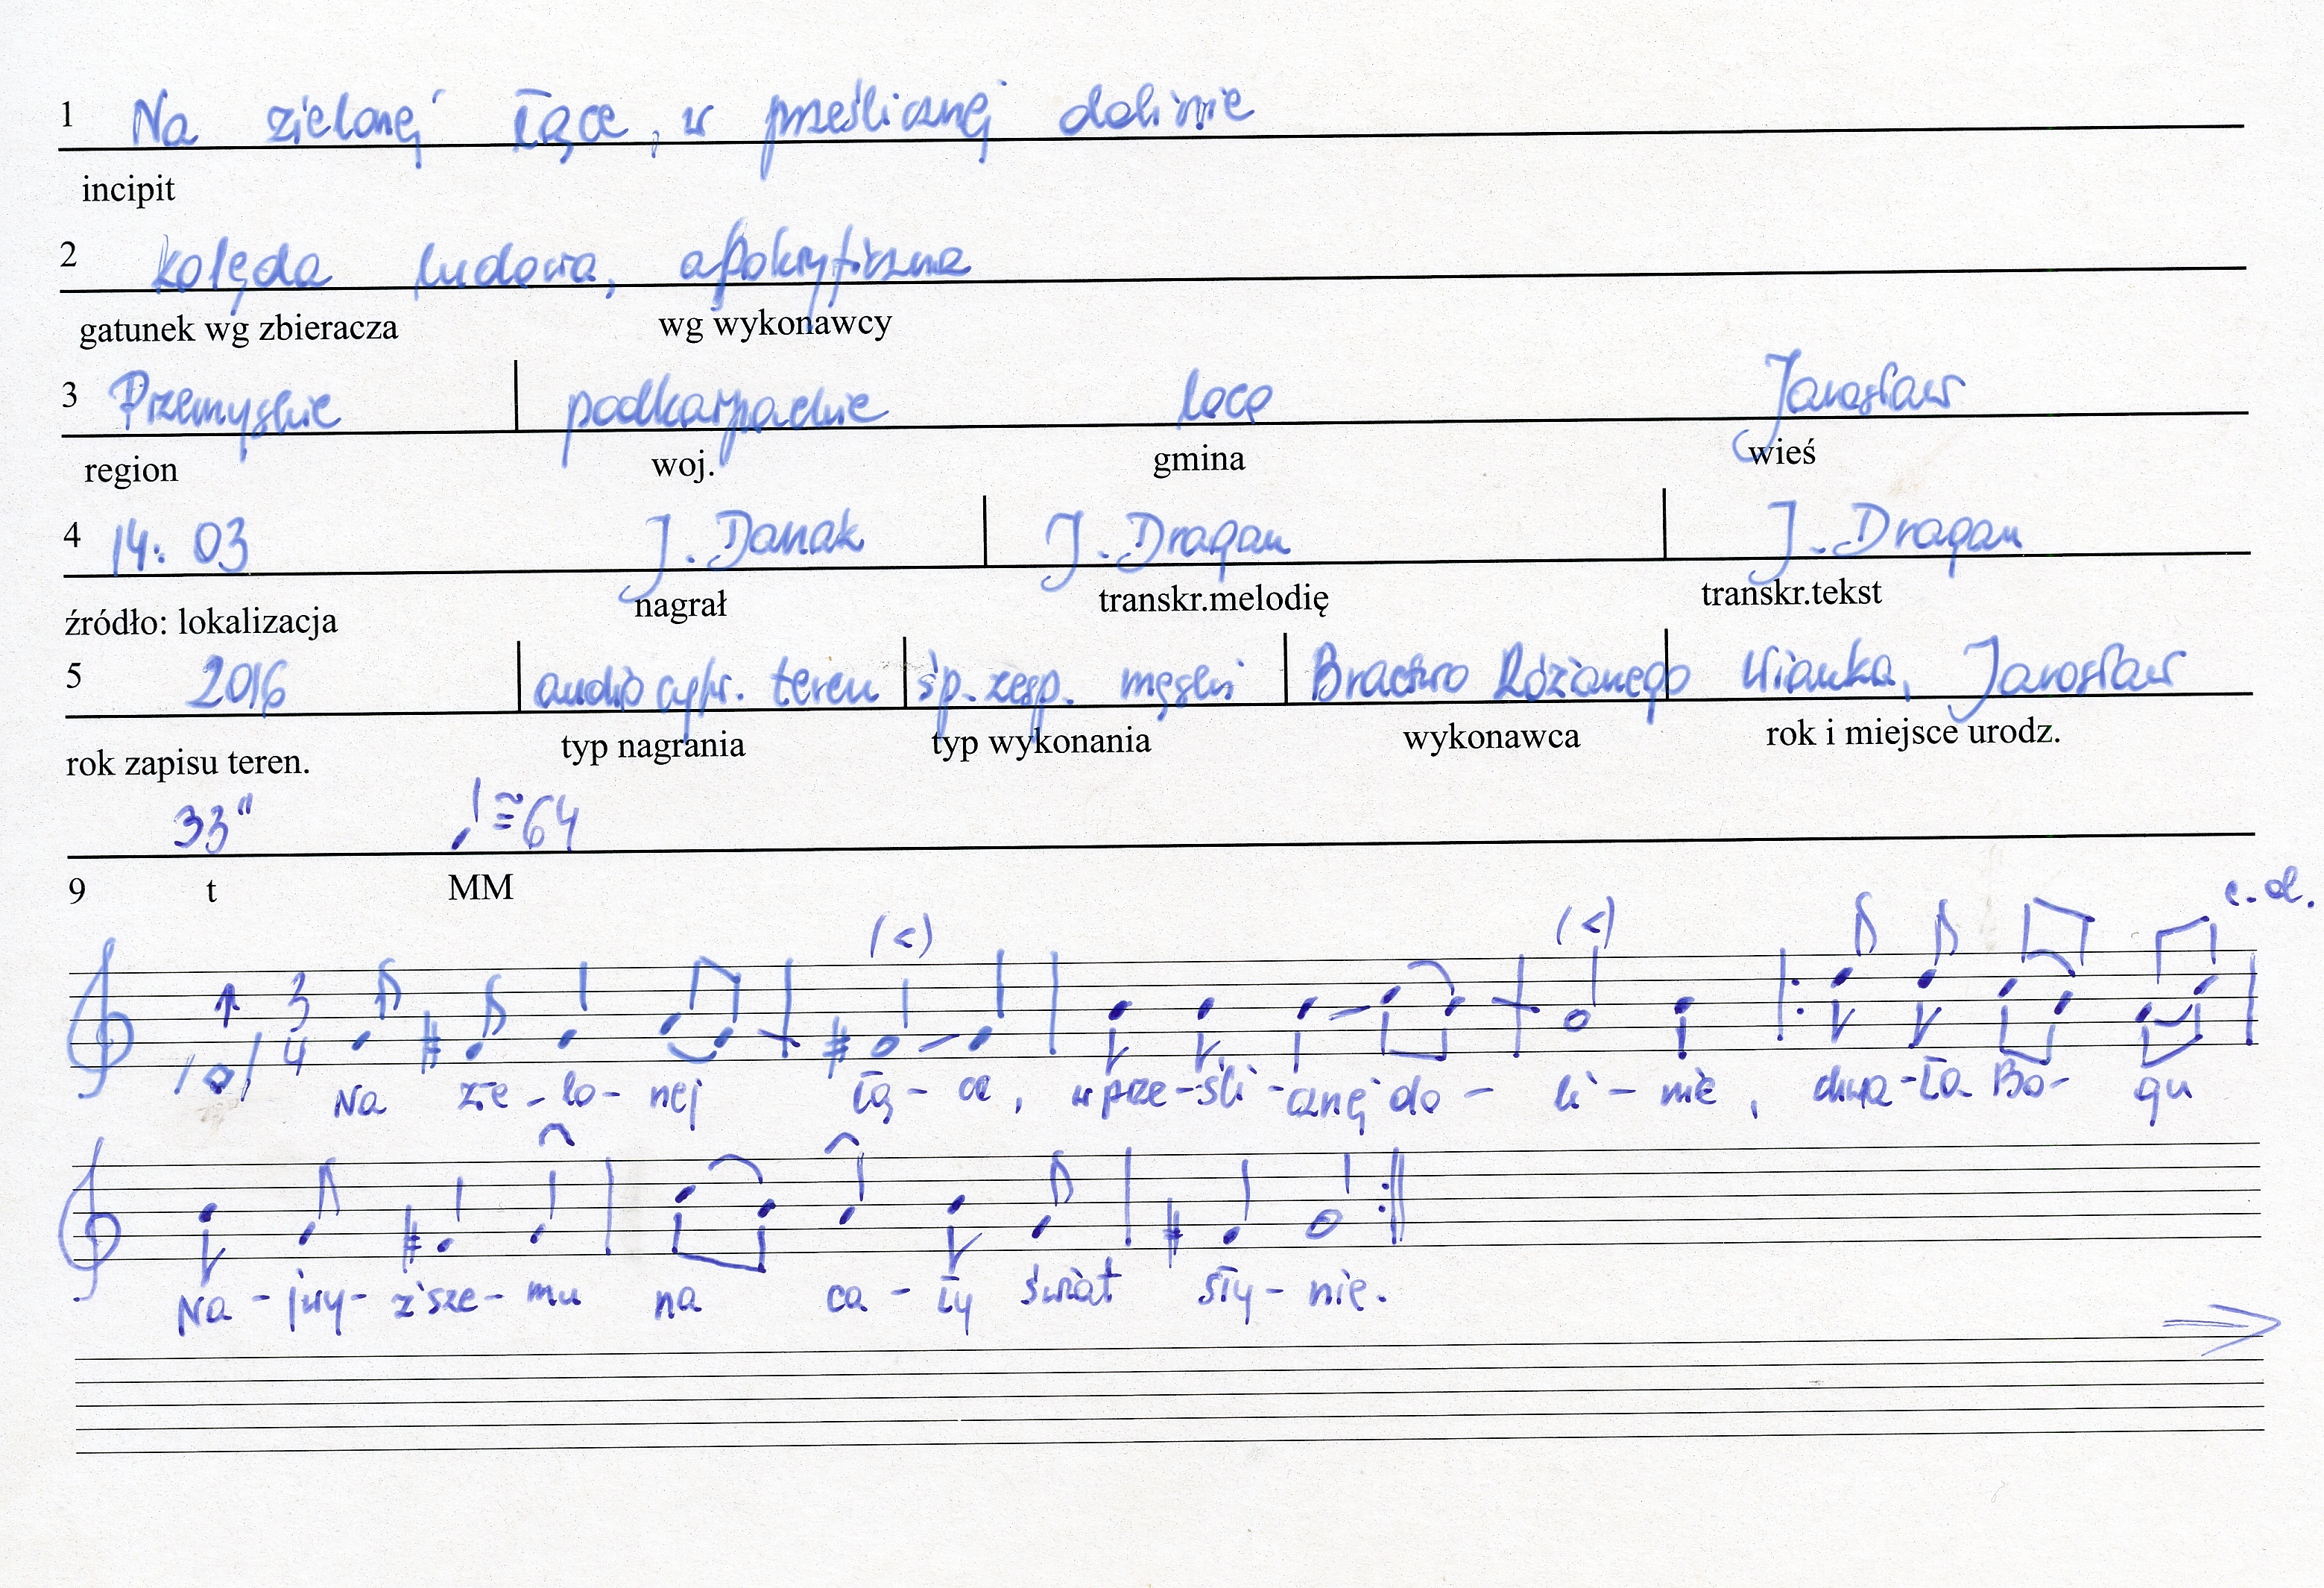 1 Na zielonej łące, w prześlicznej dolinie
incipit
2 kolęda ludowa, apokryficzna
gatunek wg zbieracza wg wykonawcy
3 Przemyskie podkarpackie loco Jarosław
region woj. gmina wieś
4 14:03 J. Danak J. Dragan J. Dragan
źródło: lokalizacja nagrał transkr.melodię transkr.tekst
5 2016 audio cyfr. teren śp. zesp. męski Bractwo Różanego Wianka, Jarosław
rok zapisu teren. typ nagrania typ wykonania wykonawca rok i miejsce urodz.
33" ♩≅64
9 t MM
c.d.
(<) (<)
3/4
Na zie-lo-nej łą-ce, w prze-śli-cznej do-li-nie, chwa-ła Bo-gu
Na-jwy-ższe-mu na ca-ły świat sły-nie.